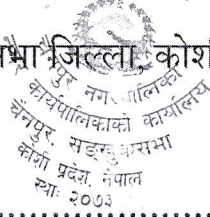 भा जिल्ला, कोश
पुर नगरपालिका
कार्यपालिकाको कार्यालय
चैनपुर, सङ्खुवासभा
कोशी प्रदेश, नेपाल
स्था: २०७३